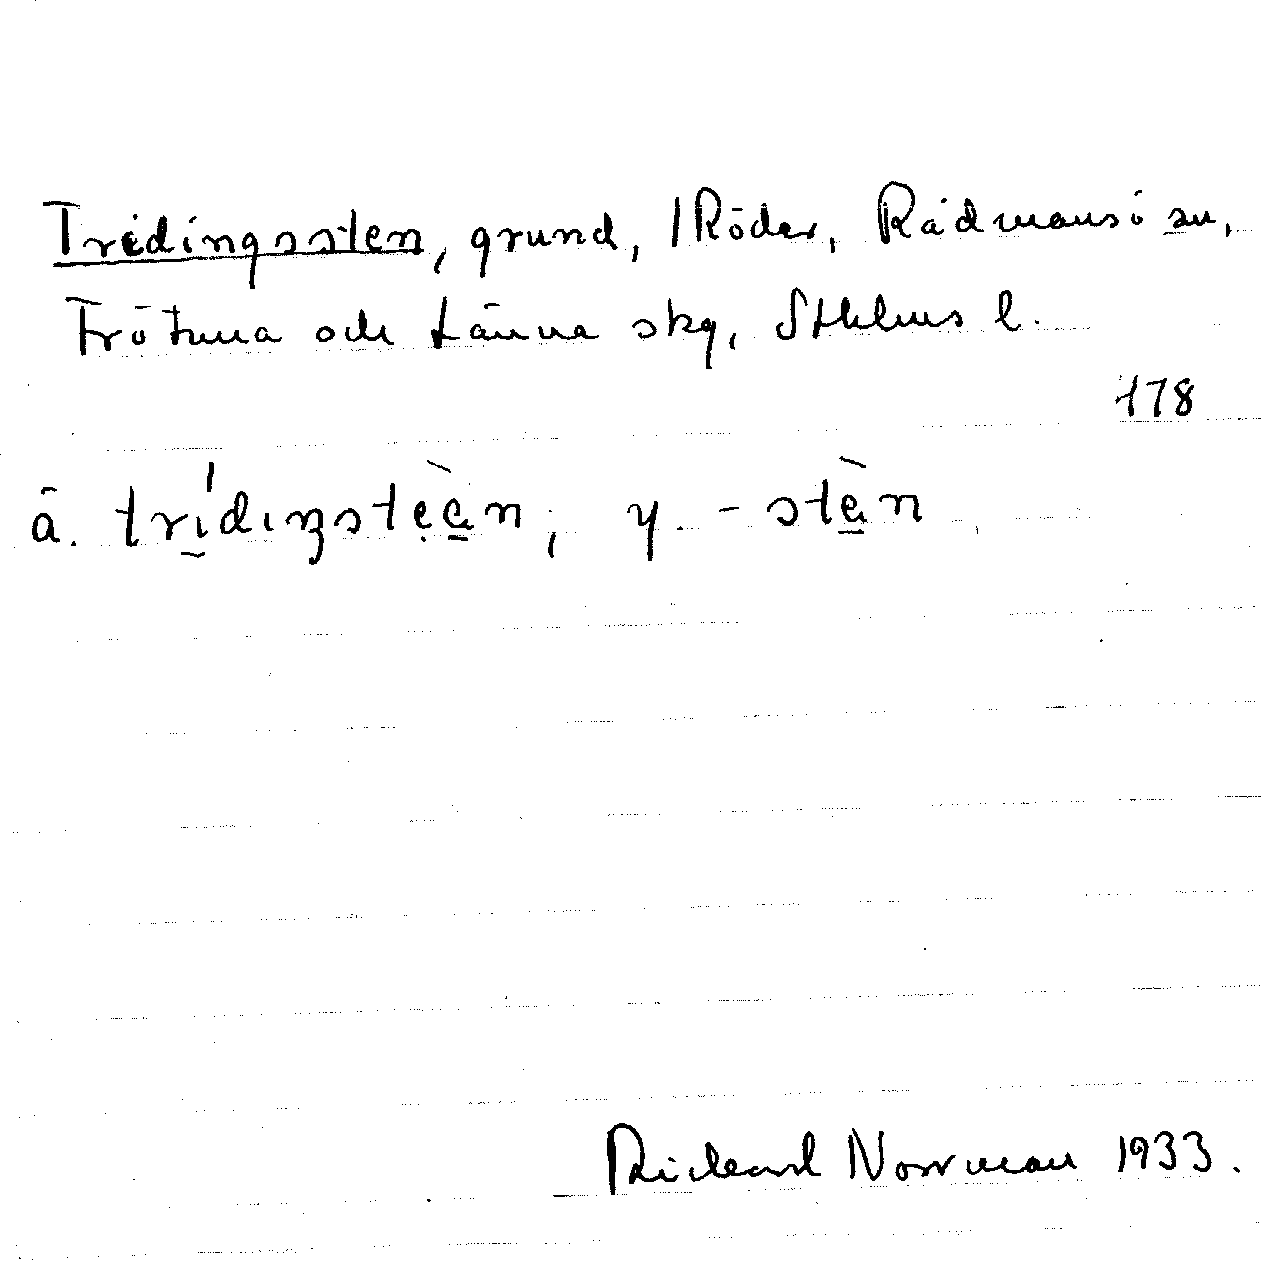 Tridingssten, grund, Röder, Rådmansö sn,
Frötuna och Länna skg, Sthlms l.
178
ä. trídiŋstèan, y. -stèn
Rickard Norrman 1933.